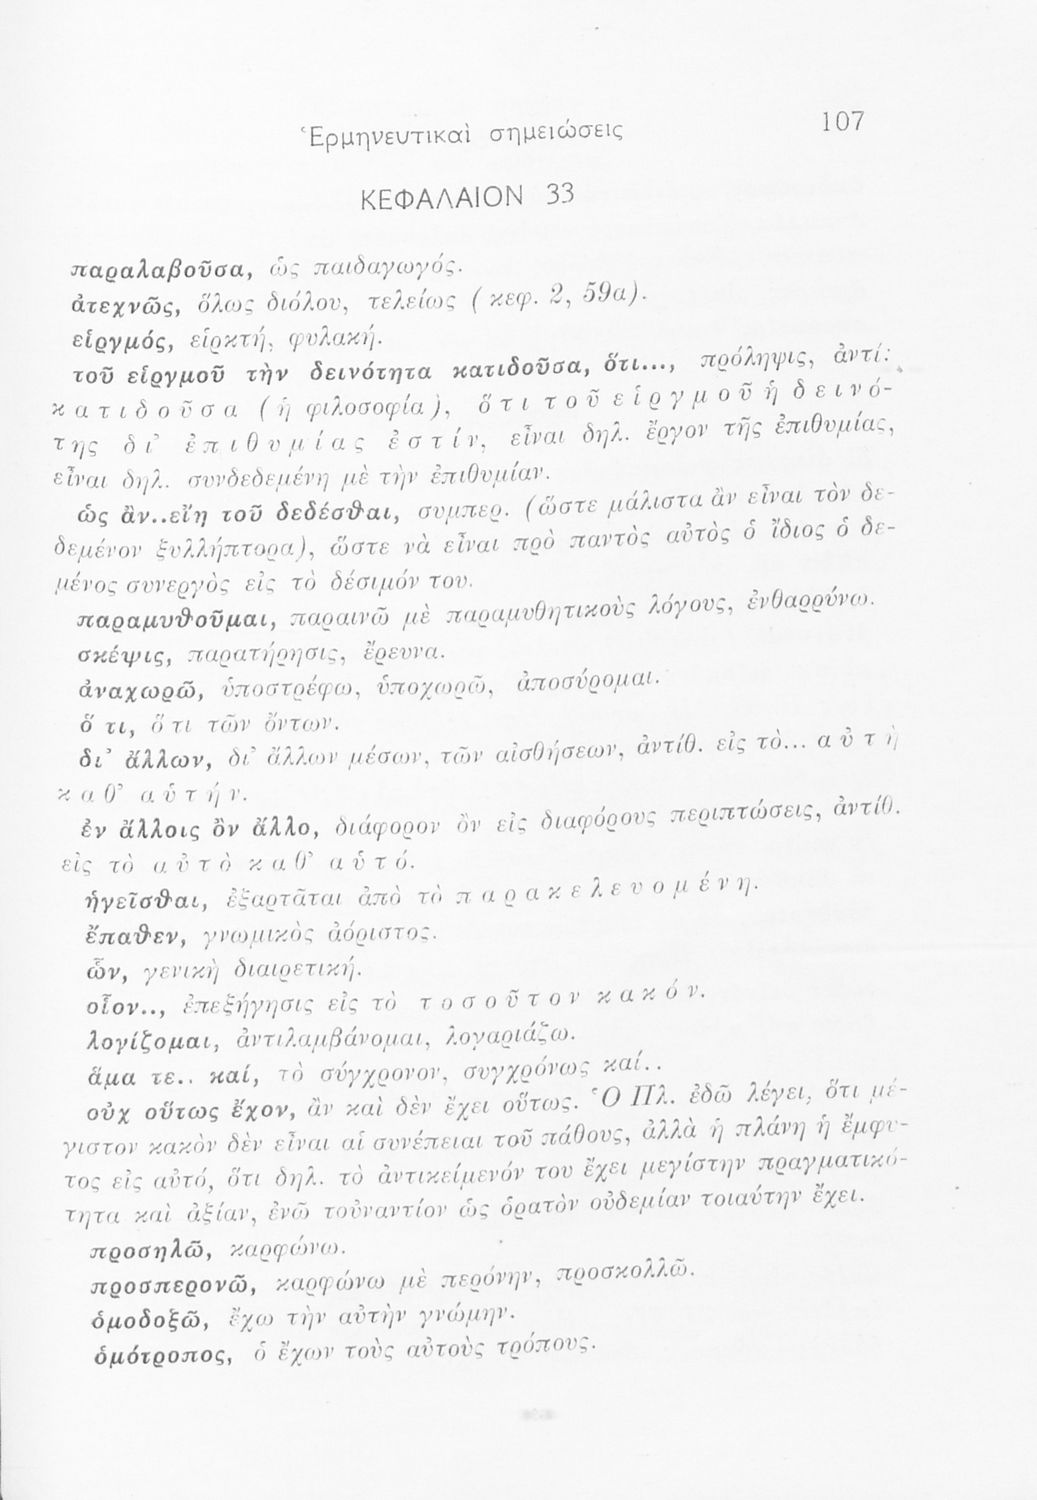 Ἑρμηνευτικαὶ σημειώσεις 107
ΚΕΦΑΛΑΙΟΝ 33
παραλαβοῦσα, ὡς παιδαγωγός.
ἀτεχνῶς, ὅλως διόλου, τελείως (κεφ. 2, 59α).
εἱργμός, εἱρκτή, φυλακή.
τοῦ εἱργμοῦ τὴν δεινότητα κατιδοῦσα, ὅτι..., πρόληψις, ἀντί:
κατιδοῦσα (ἡ φιλοσοφία), ὅτι τοῦ εἱργμοῦ ἡ δεινό-
της δι' ἐπιθυμίας ἐστίν, εἶναι δηλ. ἔργον τῆς ἐπιθυμίας,
εἶναι δηλ. συνδεδεμένη μὲ τὴν ἐπιθυμίαν.
ὡς ἂν..εἴη τοῦ δεδέσθαι, συμπερ. (ὥστε μάλιστα ἂν εἶναι τὸν δε-
δεμένον ξυλλήπτορα), ὥστε νὰ εἶναι πρὸ παντὸς αὐτὸς ὁ ἴδιος ὁ δε-
μένος συνεργὸς εἰς τὸ δέσιμόν του.
παραμυθοῦμαι, παραινῶ μὲ παραμυθητικοὺς λόγους, ἐνθαρρύνω.
σκέψις, παρατήρησις, ἔρευνα.
ἀναχωρῶ, ὑποστρέφω, ὑποχωρῶ, ἀποσύρομαι.
ὅ τι, ὅ τι τῶν ὄντων.
δι' ἄλλων, δι' ἄλλων μέσων, τῶν αἰσθήσεων, ἀντίθ. εἰς τὸ... αὐτὴ
καθ' αὑτήν.
ἐν ἄλλοις ὂν ἄλλο, διάφορον ὂν εἰς διαφόρους περιπτώσεις, ἀντίθ.
εἰς τὸ αὐτὸ καθ' αὑτό.
ἡγεῖσθαι, ἐξαρτᾶται ἀπὸ τὸ παρακελευομένη.
ἔπαθεν, γνωμικὸς ἀόριστος.
ὧν, γενικὴ διαιρετική.
οἷον.., ἐπεξήγησις εἰς τὸ τοσοῦτον κακόν.
λογίζομαι, ἀντιλαμβάνομαι, λογαριάζω.
ἅμα τε.. καί, τὸ σύγχρονον, συγχρόνως καί..
οὐχ οὕτως ἔχον, ἂν καὶ δὲν ἔχει οὕτως. Ὁ Πλ. ἐδῶ λέγει, ὅτι μέ-
γιστον κακὸν δὲν εἶναι αἱ συνέπειαι τοῦ πάθους, ἀλλὰ ἡ πλάνη ἡ ἔμφυ-
τος εἰς αὐτό, ὅτι δηλ. τὸ ἀντικείμενόν του ἔχει μεγίστην πραγματικό-
τητα καὶ ἀξίαν, ἐνῶ τοὐναντίον ὡς ὁρατὸν οὐδεμίαν τοιαύτην ἔχει.
προσηλῶ, καρφώνω.
προσπερονῶ, καρφώνω μὲ περόνην, προσκολλῶ.
ὁμοδοξῶ, ἔχω τὴν αὐτὴν γνώμην.
ὁμότροπος, ὁ ἔχων τοὺς αὐτοὺς τρόπους.